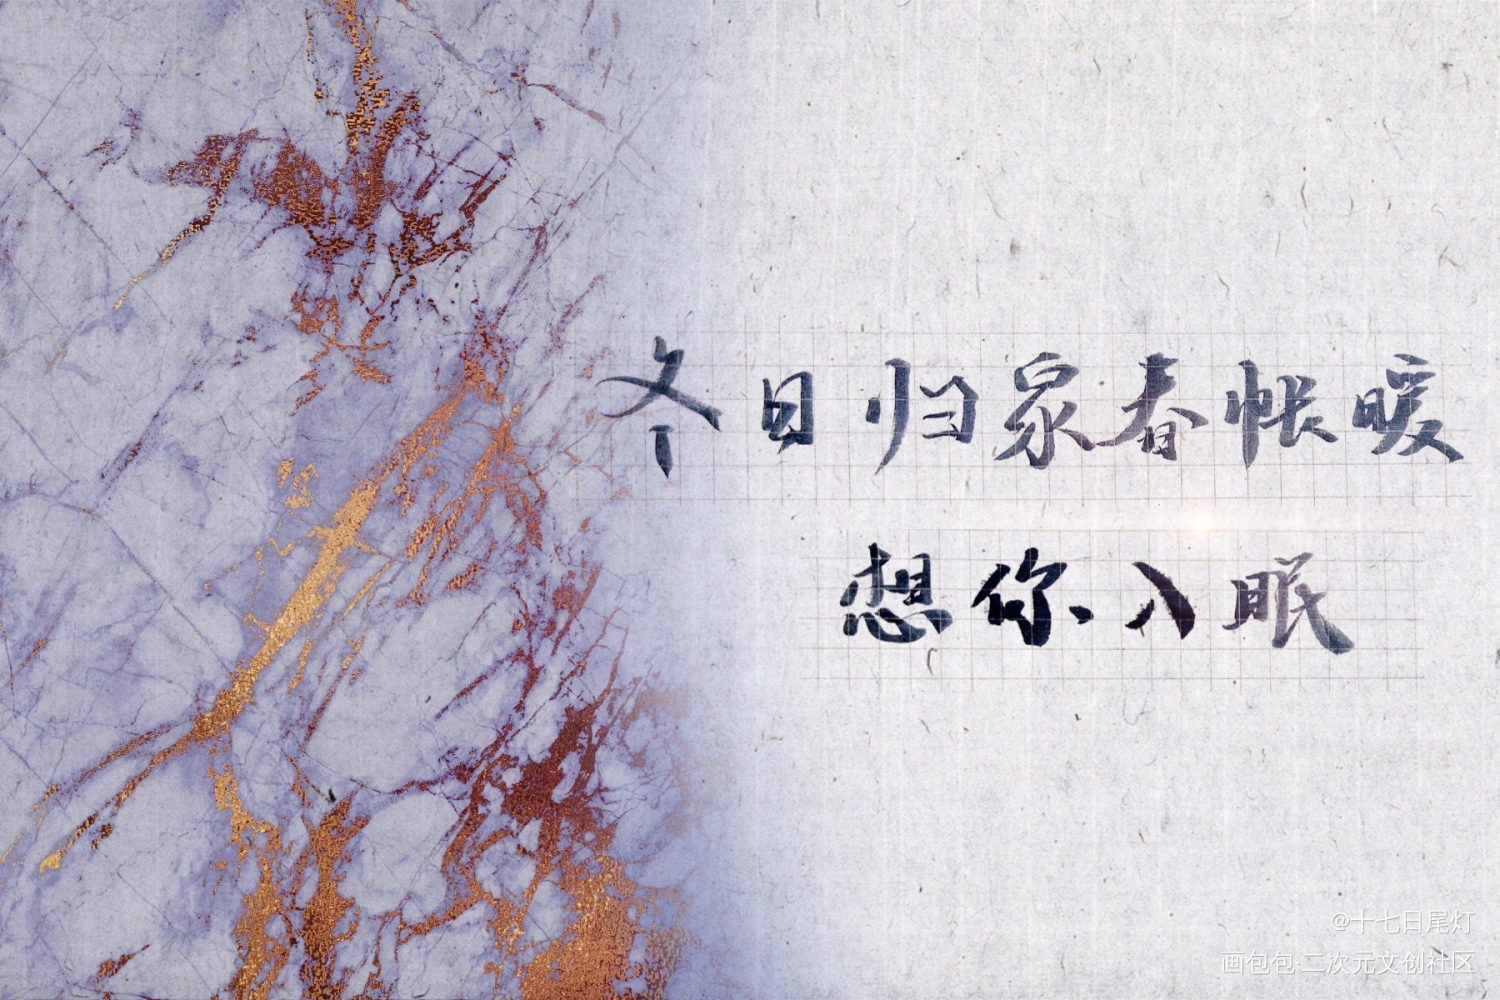 冬日归家春帐暖
想你入眠
@十七日尾灯
画包包·二次元文创社区